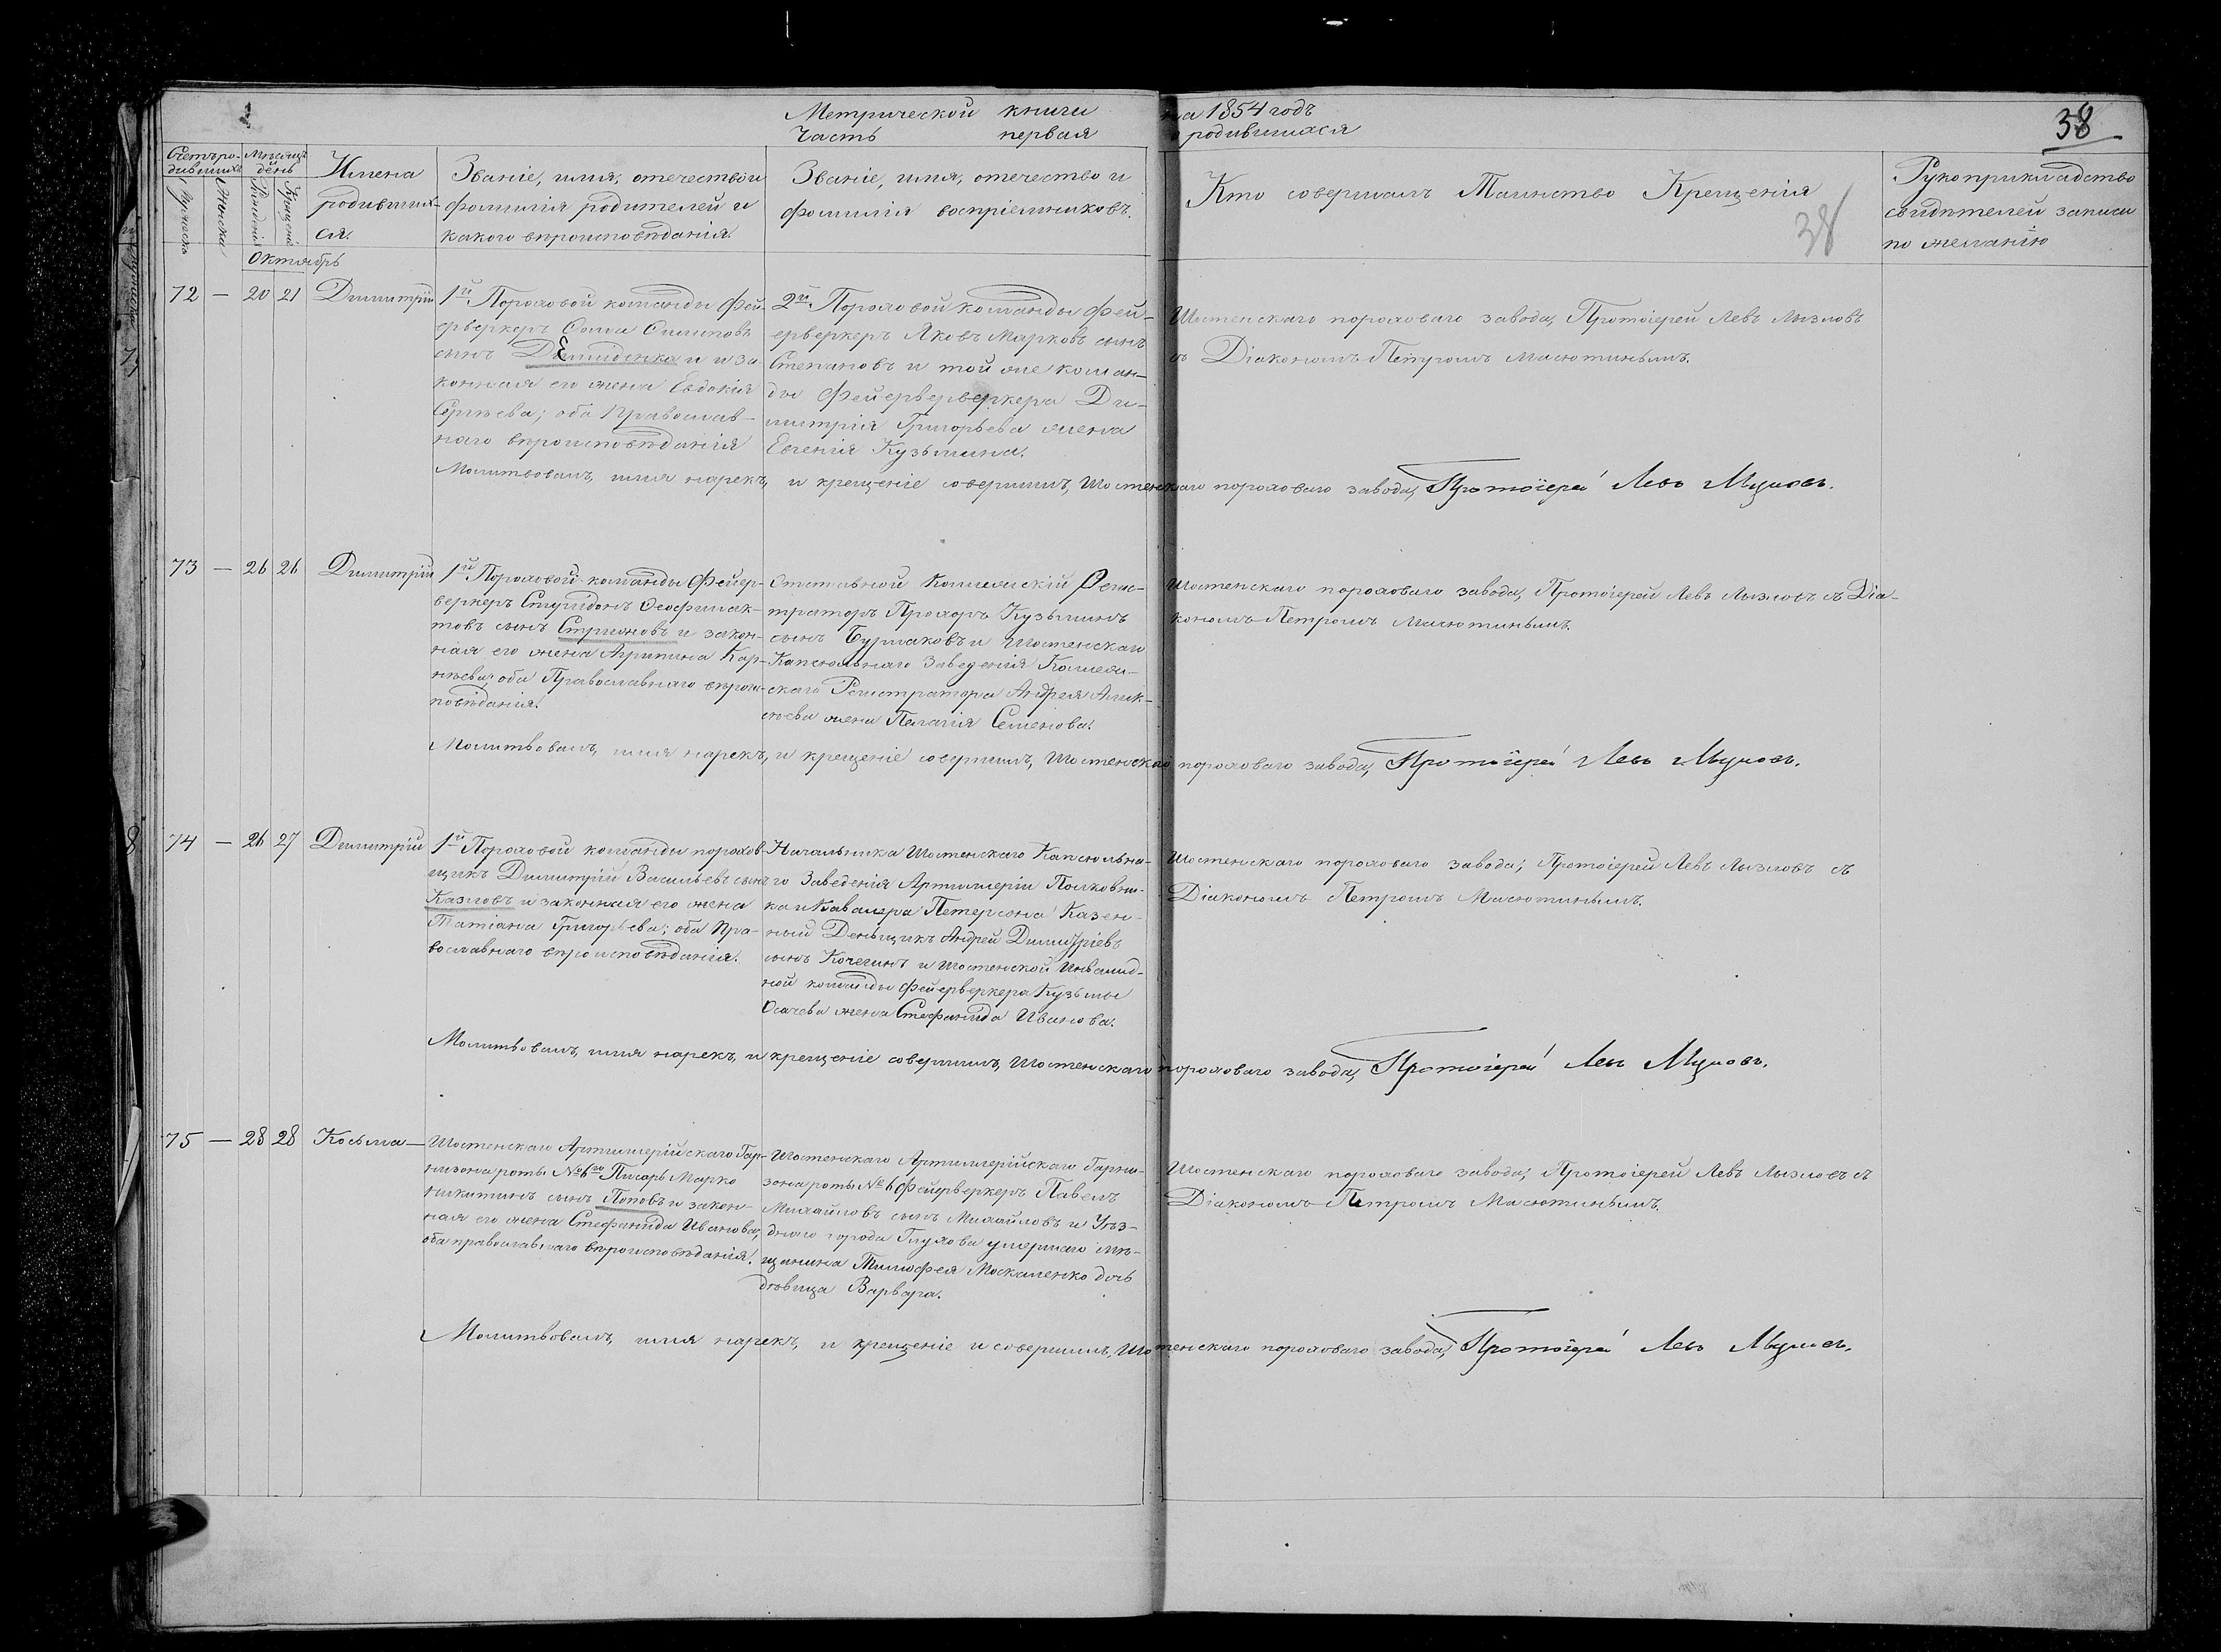 Метрической книги на 1854 годъ
Часть первая о родившихся
38
Счетъ ро-
дившихъ
Мѣсяцъ
день
Имена
родивших-
ся.
Званіе, имя, отечество и
фамилія родителей и
какого вѣроисповѣданія.
Званіе, имя, отечество и
фамилія воспріемниковъ.
Кто совершалъ Таинство Крещенія
38
Рукоприкладство
свидѣтелей записи
по желанію
Мужеска
Женска
Рожденія
Крещенія
Октябрь
72 — 20 21 Димитрій
1й Пороховой команды Фей-
ерверкеръ Ѳома
сынъ Демиденка и за-
конная его жена Евдокія
Сергѣева; оба Православ-
наго вѣроисповѣданія
2й Пороховой команды Фей-
ерверкеръ Яковъ Марковъ сынъ
Степановъ и той же коман-
ды Фейерверверкера Ди-
митрія Григорьева жена
Евгенія Кузьмина.
Шостенскаго пороховаго завода, Протоіерей Левъ Лызловъ
съ Діакономъ Петромъ Масютинымъ.
Молитвовалъ, имя нарекъ, и крещеніе совершилъ, Шостенскаго пороховаго завода, Протоіерей Левъ Лызловъ.
73 — 26 26 Димитрій
1й Пороховой команды Фейер-
веркеръ Спиридонъ Ѳеофилак-
товъ сынъ Стригоновъ и закон-
ная его жена Агрипина Кор-
нѣева; оба Православнаго вѣроис-
повѣданія.
Отставной Коллежскій Регис-
траторъ Прохоръ Кузьминъ
сынъ Бурлаковъ и Шостенскаго
Капсюльнаго Заведенія Коллеж-
скаго Регистратора Андрея Алек-
сѣева жена Пелагія Семенова.
Шостенскаго пороховаго завода, Протоіерей Левъ Лызловъ съ Діа-
кономъ Петромъ Масютинымъ.
Молитвовалъ, имя нарекъ, и крещеніе совершилъ, Шостенскаго пороховаго завода, Протоіерей Левъ Лызловъ.
74 — 26 27 Димитрій
1й Пороховой команды порохов-
щикъ Димитрій Васильевъ сынъ
Казловъ и законная его жена
Татіана Григорьева; оба Пра-
вославнаго вѣроисповѣданія.
Начальника Шостенскаго Капсюльна-
го Заведенія Артиллеріи Полковни-
ка и Кавалера Петерсона Казен-
ный Деньщикъ Андрей Димитріевъ
сынъ Кочегинъ и Шостенской Инвалид-
ной команды фейерверкера Кузьмы
Осачева жена Стефанида Иванова.
Шостенскаго пороховаго завода; Протоіерей Левъ Лызловъ съ
Діакономъ Петромъ Масютинымъ.
Молитвовалъ, имя нарекъ, и крещеніе совершилъ, Шостенскаго пороховаго завода, Протоіерей Левъ Лызловъ.
75 — 28 28 Косьма —
Шостенскаго Артиллерійскаго Гар-
низона роты № 6го Писарь Марко
Никитинъ сынъ Поповъ и закон-
ная его жена Стефанида Иванова,
оба православнаго вѣроисповѣданія.
Шостенскаго Артиллерійскаго Гарни-
зона роты № 6 Фейерверкеръ Павелъ
Михайловъ сынъ Михайловъ и Уѣз-
днаго города Глухова умершаго мѣ-
щанина Тимофея Москаленко дочь
дѣвица Варвара.
Шостенскаго пороховаго завода; Протоіерей Левъ Лызловъ съ
Діакономъ Петромъ Масютинымъ.
Молитвовалъ, имя нарекъ, и крещеніе и совершилъ, Шостенскаго пороховаго завода, Протоіерей Левъ Лызловъ.